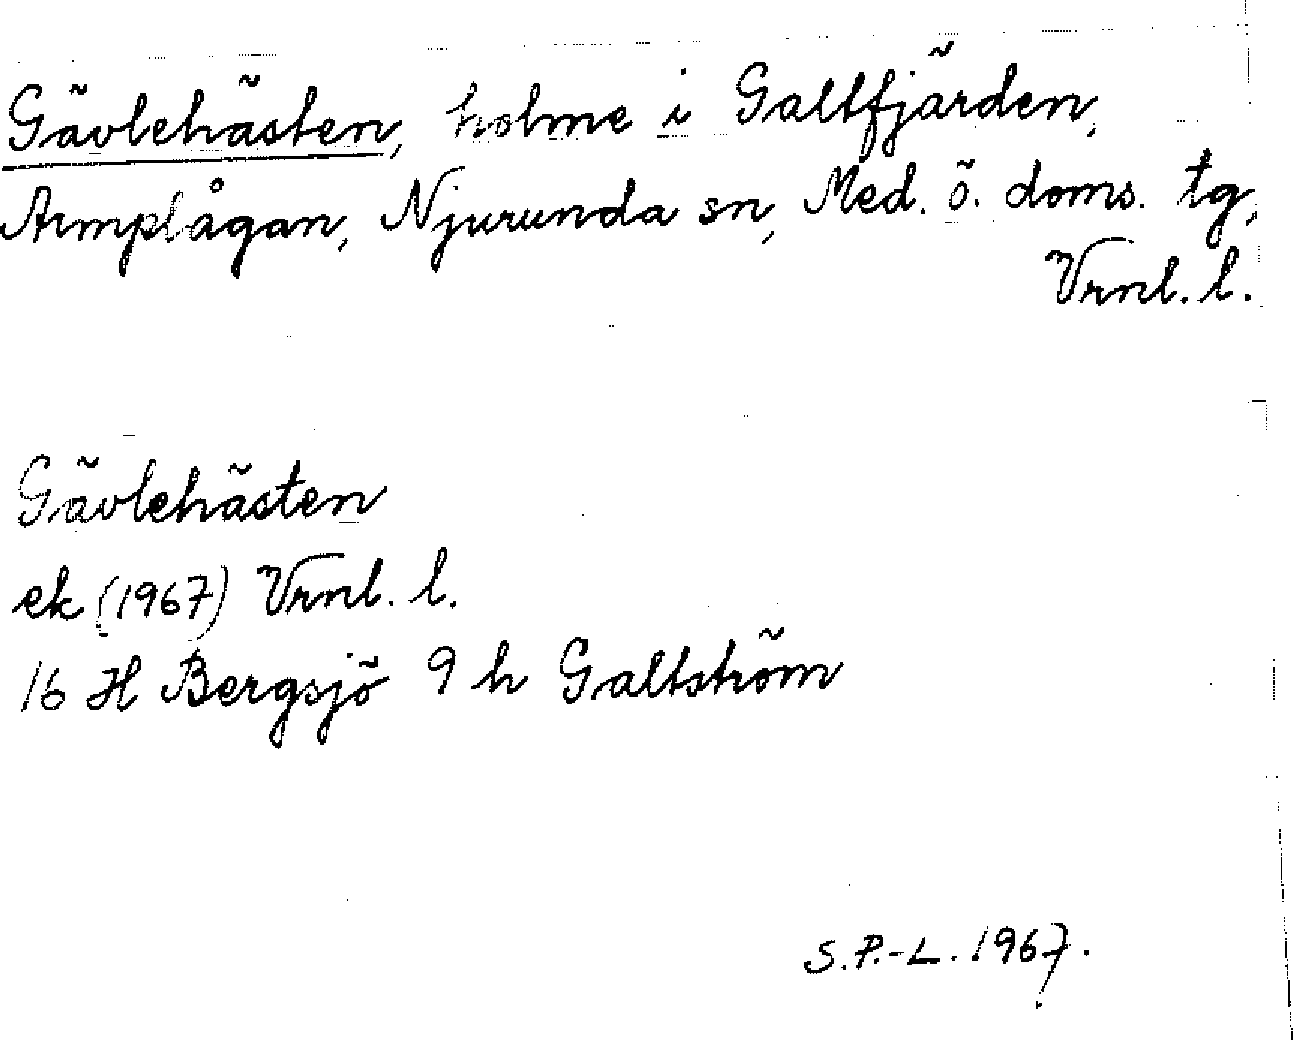 Gävlehästen, holme i Galtfjärden,
Armplågan, Njurunda sn, Med. ö. doms. tg,
Vrnl. l.
Gävlehästen
ek (1967) Vrnl. l.
16 H Bergsjö 9 h Galtström
S.P.-L. 1967.